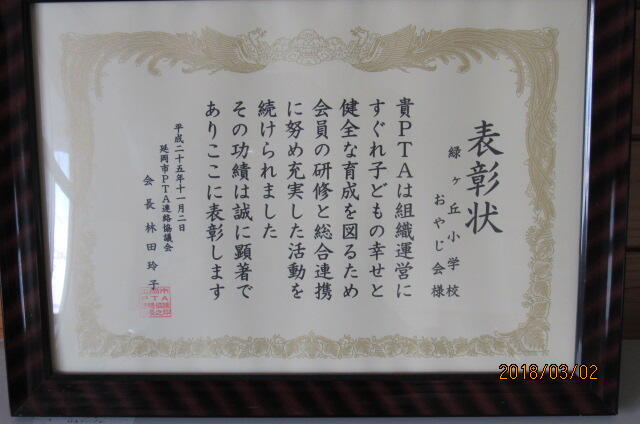 表彰状
緑ヶ丘小学校
おやじ会様
貴PTAは組織運営に
すぐれ子どもの幸せと
健全な育成を図るため
会員の研修と総合連携
に努め充実した活動を
続けられました
その功績は誠に顕著で
ありここに表彰します
平成二十五年十一月二日
延岡市PTA連絡協議会
会長 林田玲子
2018/03/02